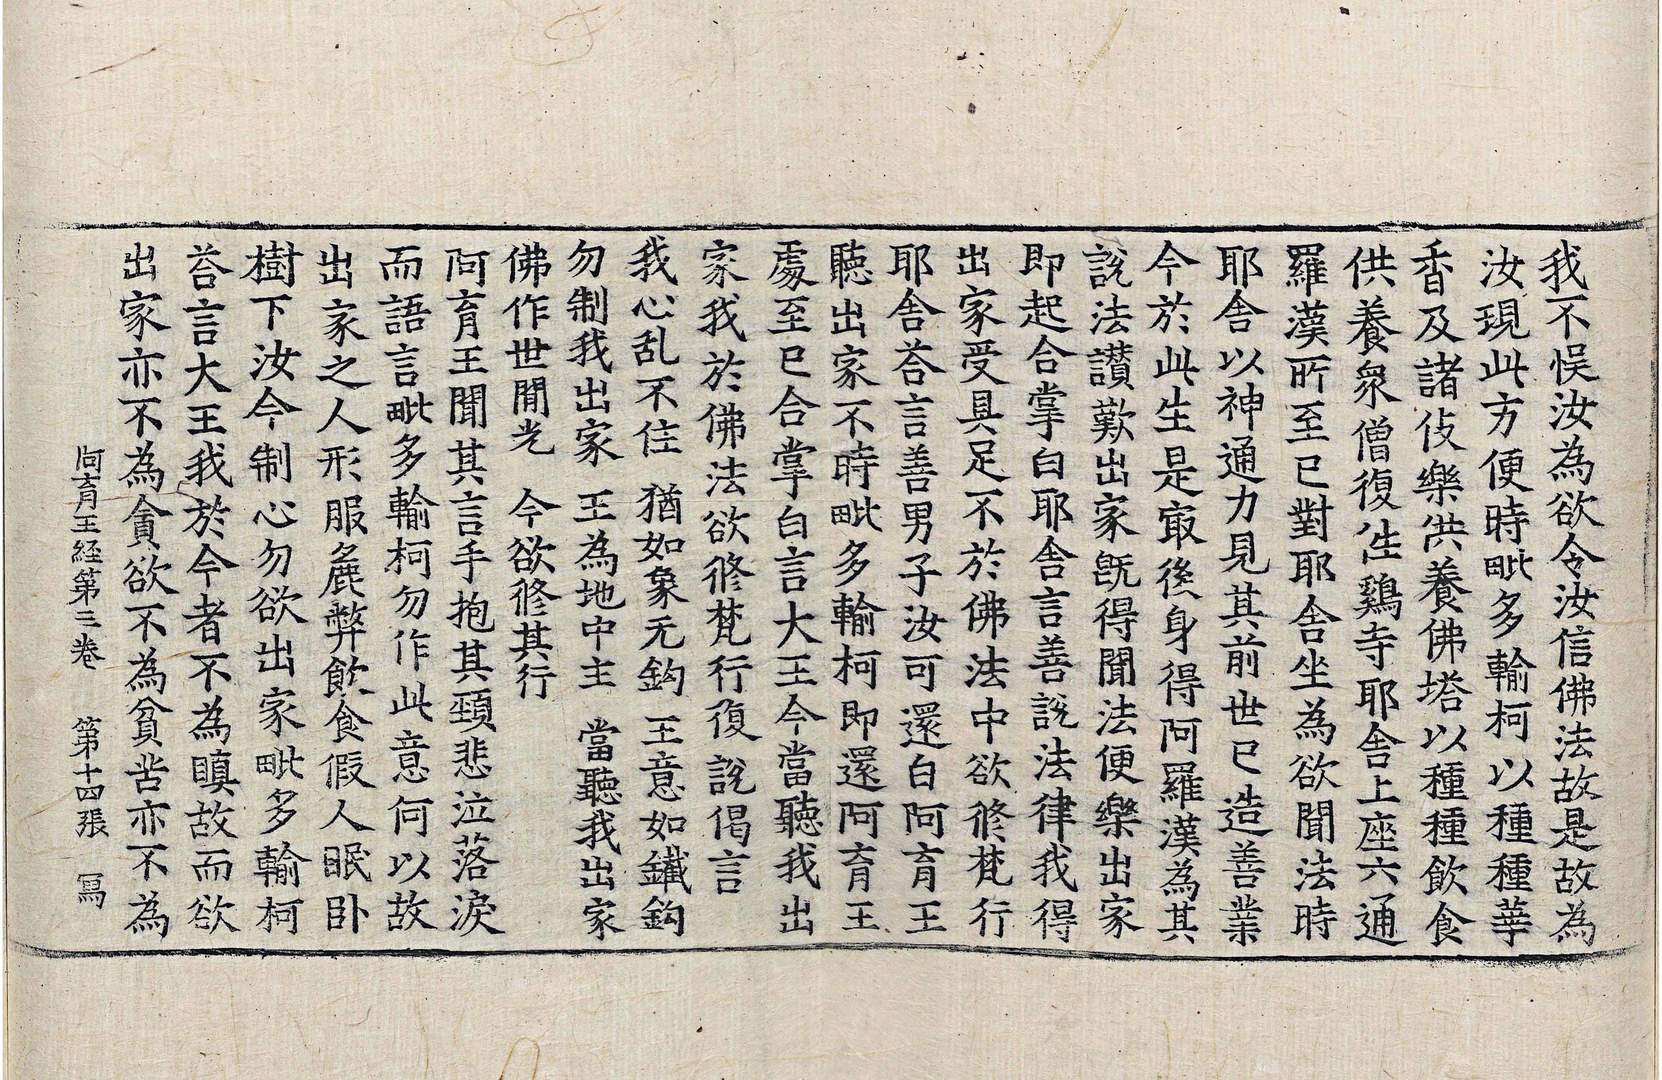 我不悞汝為欲令汝信佛法故是故為
汝現此方便時毗多輸柯以種種華
香及諸伎樂供養佛塔以種種飲食
供養衆僧復徃鷄寺耶舍上座六通
羅漢所至已對耶舍坐為欲聞法時
耶舍以神通力見其前世已造善業
今於此生是㝡後身得阿羅漢為其
說法讃歎出家旣得聞法便樂出家
即起合掌白耶舍言善說法律我得
出家受具足不於佛法中欲修梵行
耶舍荅言善男子汝可還白阿育王
聽出家不時毗多輸柯即還阿育王
處至已合掌白言大王今當聽我出
家我於佛法欲修梵行復說偈言
我心乱不住 猶如象无鈎 王意如鐵鈎
勿制我出家 王為地中主 當聽我出家
佛作世間光 今欲修其行
阿育王聞其言手抱其頸悲泣落淚
而語言毗多輸柯勿作此意何以故
出家之人形服麁弊飮食假人眠卧
樹下汝今制心勿欲出家毗多輸柯
荅言大王我於今者不為瞋故而欲
出家亦不為貪欲不為貧苦亦不為
阿育王経第三卷 第十四張 冩